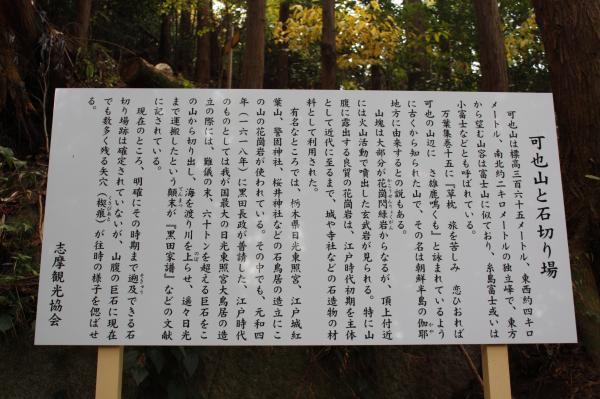 可也山と石切り場
可也山は標高三百六十五メートル、東西約四キロ
メートル、南北約二キロメートルの独立峰で、東方
から望む山容は富士山に似ており、糸島富士或いは
小富士などとも呼ばれている。
万葉集巻十五に『草枕 旅を苦しみ 恋ひおれば
可也の山辺に さ雄鹿鳴くも』と詠まれているよう
に古くから知られた山で、その名は朝鮮半島の伽耶
地方に由来するとの説もある。
山塊は大部分が花崗閃緑岩からなるが、頂上付近
には火山活動で噴出した玄武岩が見られる。特に山
腹に露出する良質の花崗岩は、江戸時代初期を主体
として近代に至るまで、城や寺社などの石造物の材
料として利用された。
有名なところでは、栃木県日光東照宮、江戸城紅
葉山、警固神社、桜井神社などの石鳥居の造立にこ
の山の花崗岩が使われている。その中でも、元和四
年（一六一八年）に黒田長政が善請した、江戸時代
のものとしては我が国最大の日光東照宮大鳥居の造
立の際には、難儀の末、六十トンを超える巨石をこ
の山から切り出し、海を渡り川を上らせ、遥々日光
まで運搬したという顛末が『黒田家譜』などの文献
に記されている。
現在のところ、明確にその時期まで遡及できる石
切り場跡は確定されていないが、山腹の巨石に現在
でも数多く残る矢穴（楔痕）が往時の様子を偲ばせ
る。
志摩観光協会